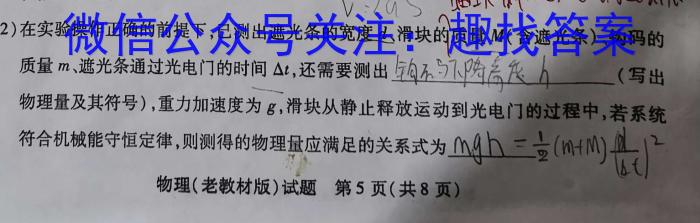 2)在实验操作正确的前提下,已测出遮光条的宽度d、滑块的质量M(含遮光条)、钩码的
微信公众号关注：趣找答案
质量m、遮光条通过光电门的时间Δt,还需要测出 下降高度h (写出
物理量及其符号),重力加速度为g,滑块从静止释放运动到光电门的过程中,若系统
符合机械能守恒定律,则测得的物理量应满足的关系式为 mgh=½(m+M)(d/Δt)²
物理(老教材版)试题 第5页(共8页)